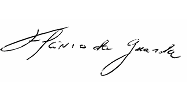 Flávio de Guarda